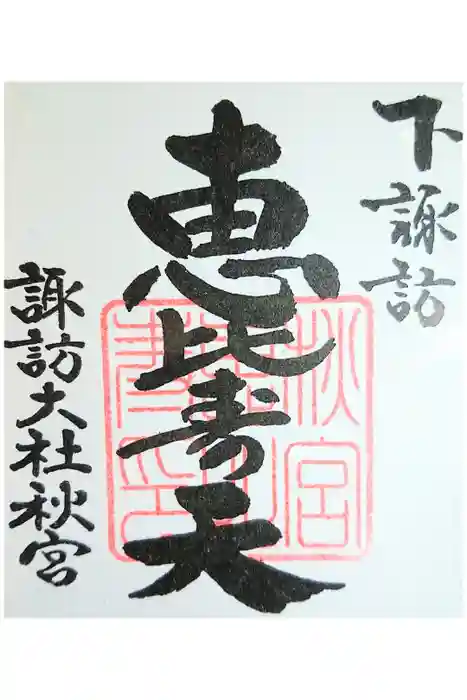 下諏訪
恵比寿天
諏訪大社秋宮
秋宮